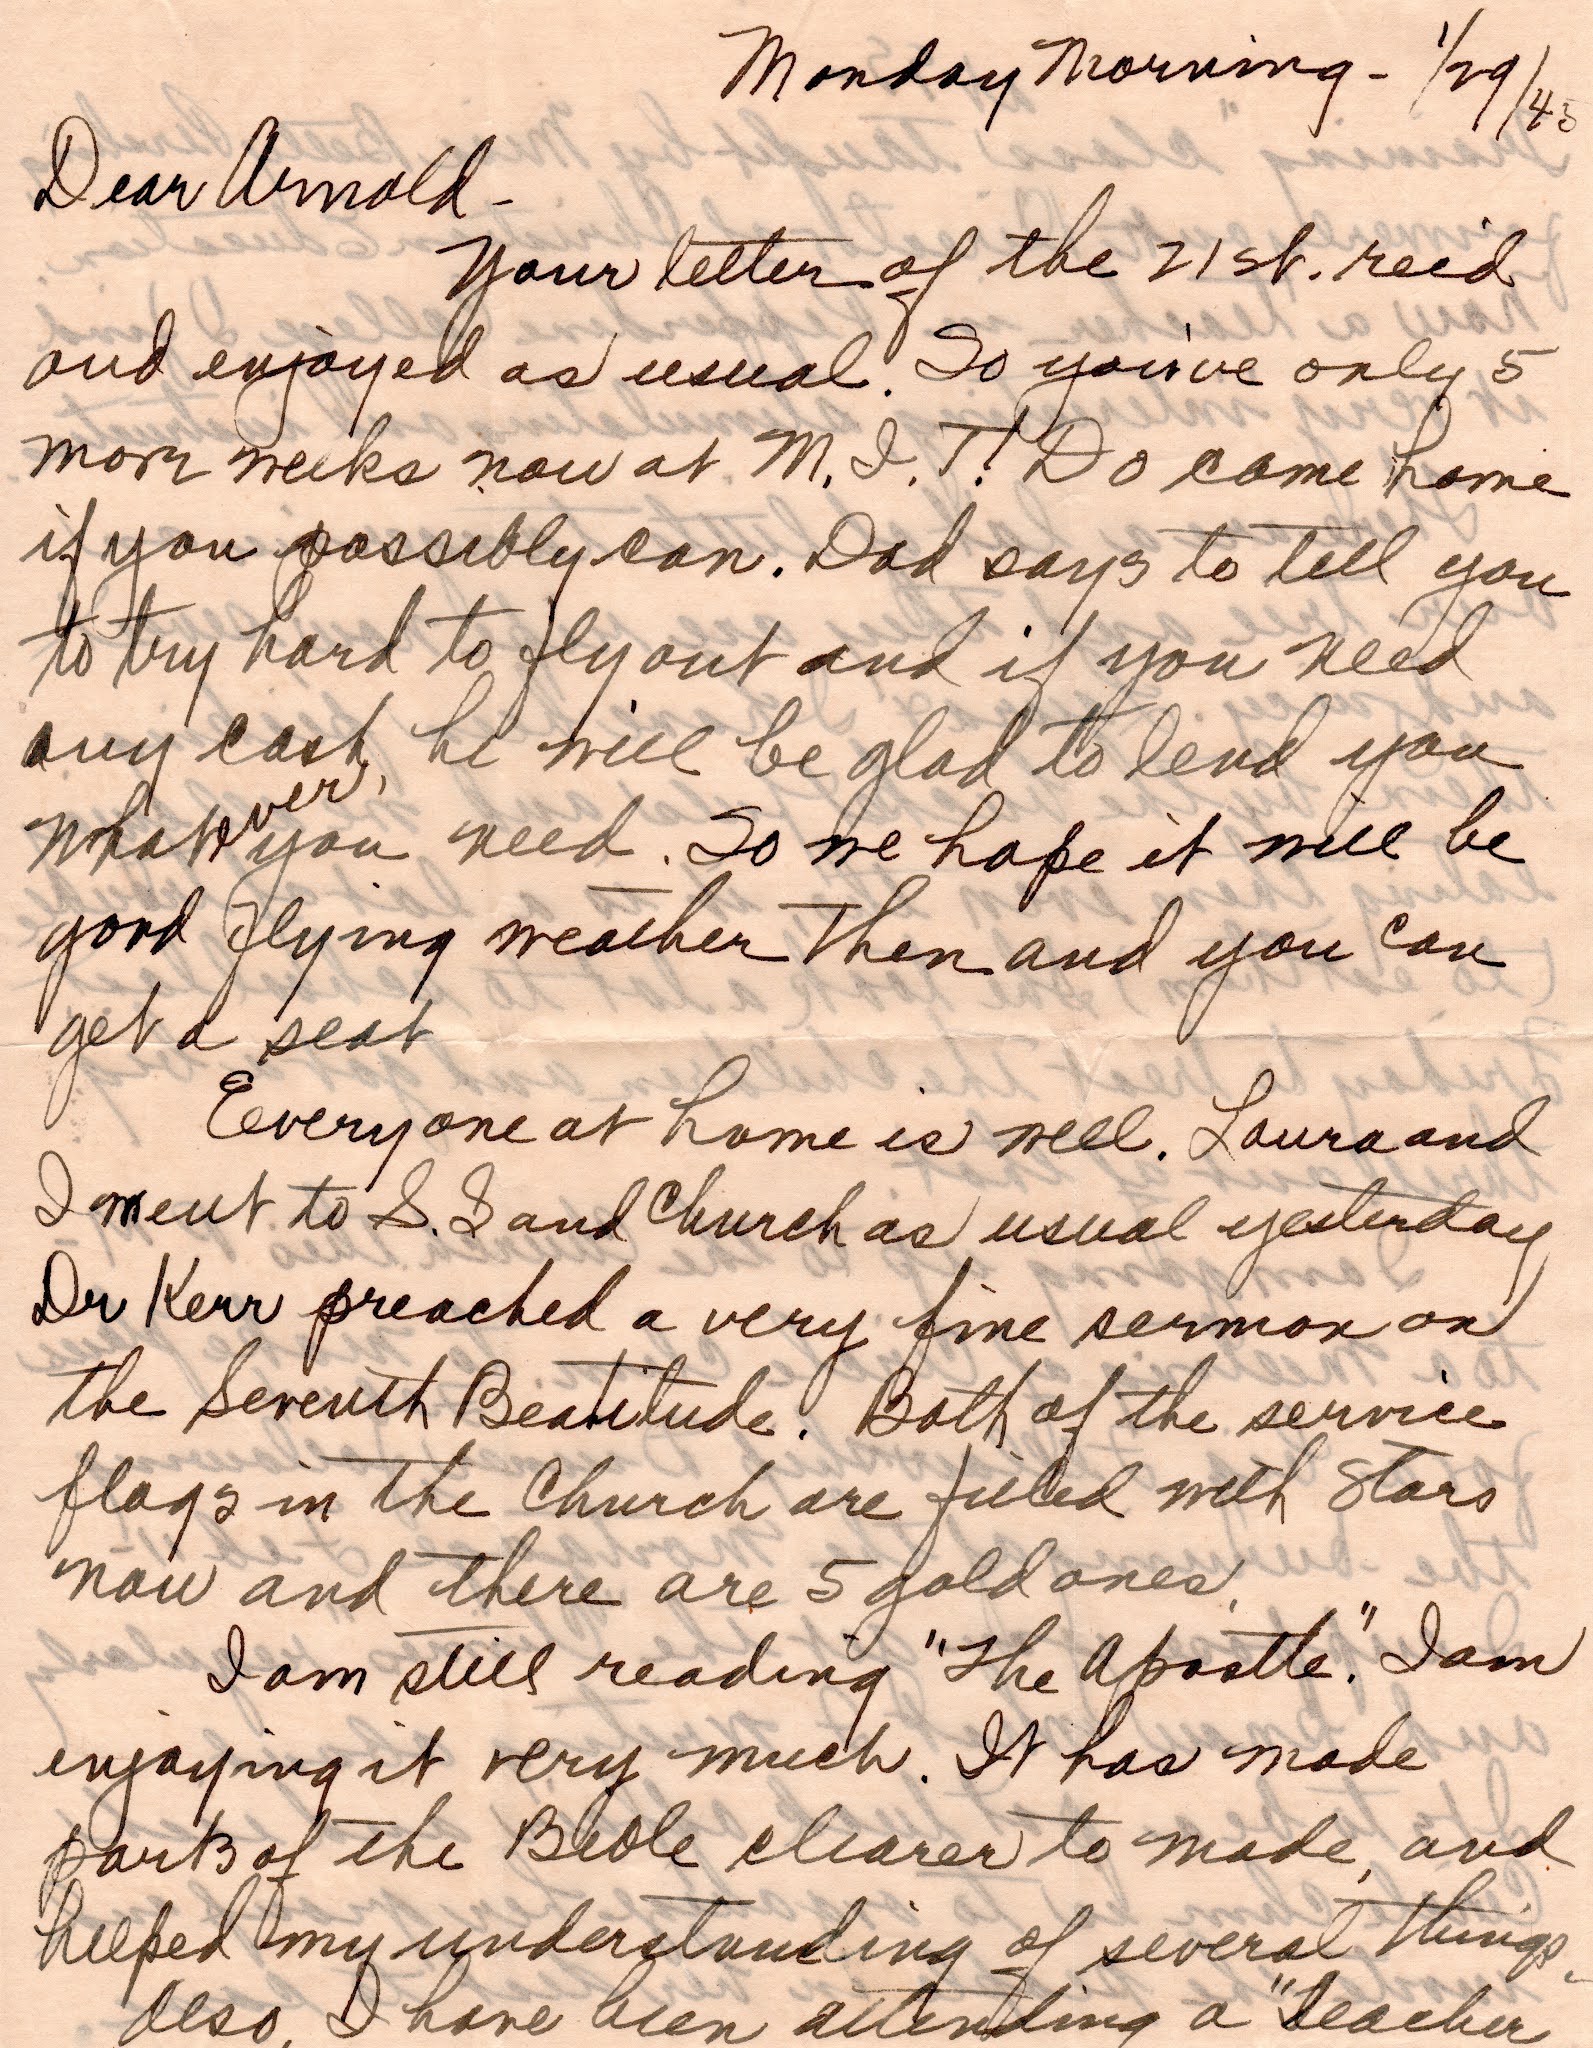 Monday Morning - 1/29/45
Dear Arnold -
Your letter of the 21st. rec'd
and enjoyed as usual. So you've only 5
more weeks now at M.I.T! Do come home
if you possibly can. Dad says to tell you
to try hard to fly out and if you need
any cash, he will be glad to lend you
whatever you need. So we hope it will be
good flying weather then and you can
get a seat
Everyone at home is well. Laura and
I went to S.S and Church as usual yesterday
Dr Kerr preached a very fine sermon on
the Seventh Beatitude. Both of the service
flags in the Church are filled with stars
now and there are 5 gold ones.
I am still reading "The Apostle". I am
enjoying it very much. It has made
parts of the Bible clearer to made, and
helped my understanding of several things.
Also, I have been attending a "Teacher